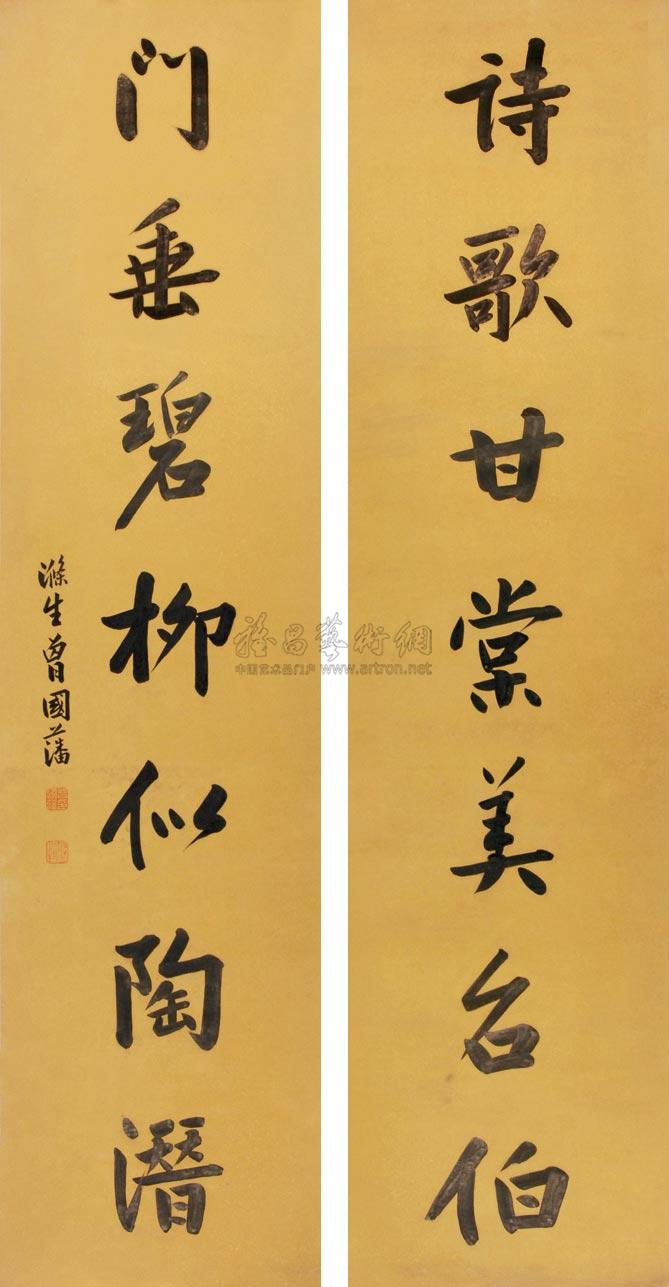 诗歌甘棠美召伯
门垂碧柳似陶潜
滌生曾國藩
雅昌藝術網
中国艺术品门户 www.artron.net